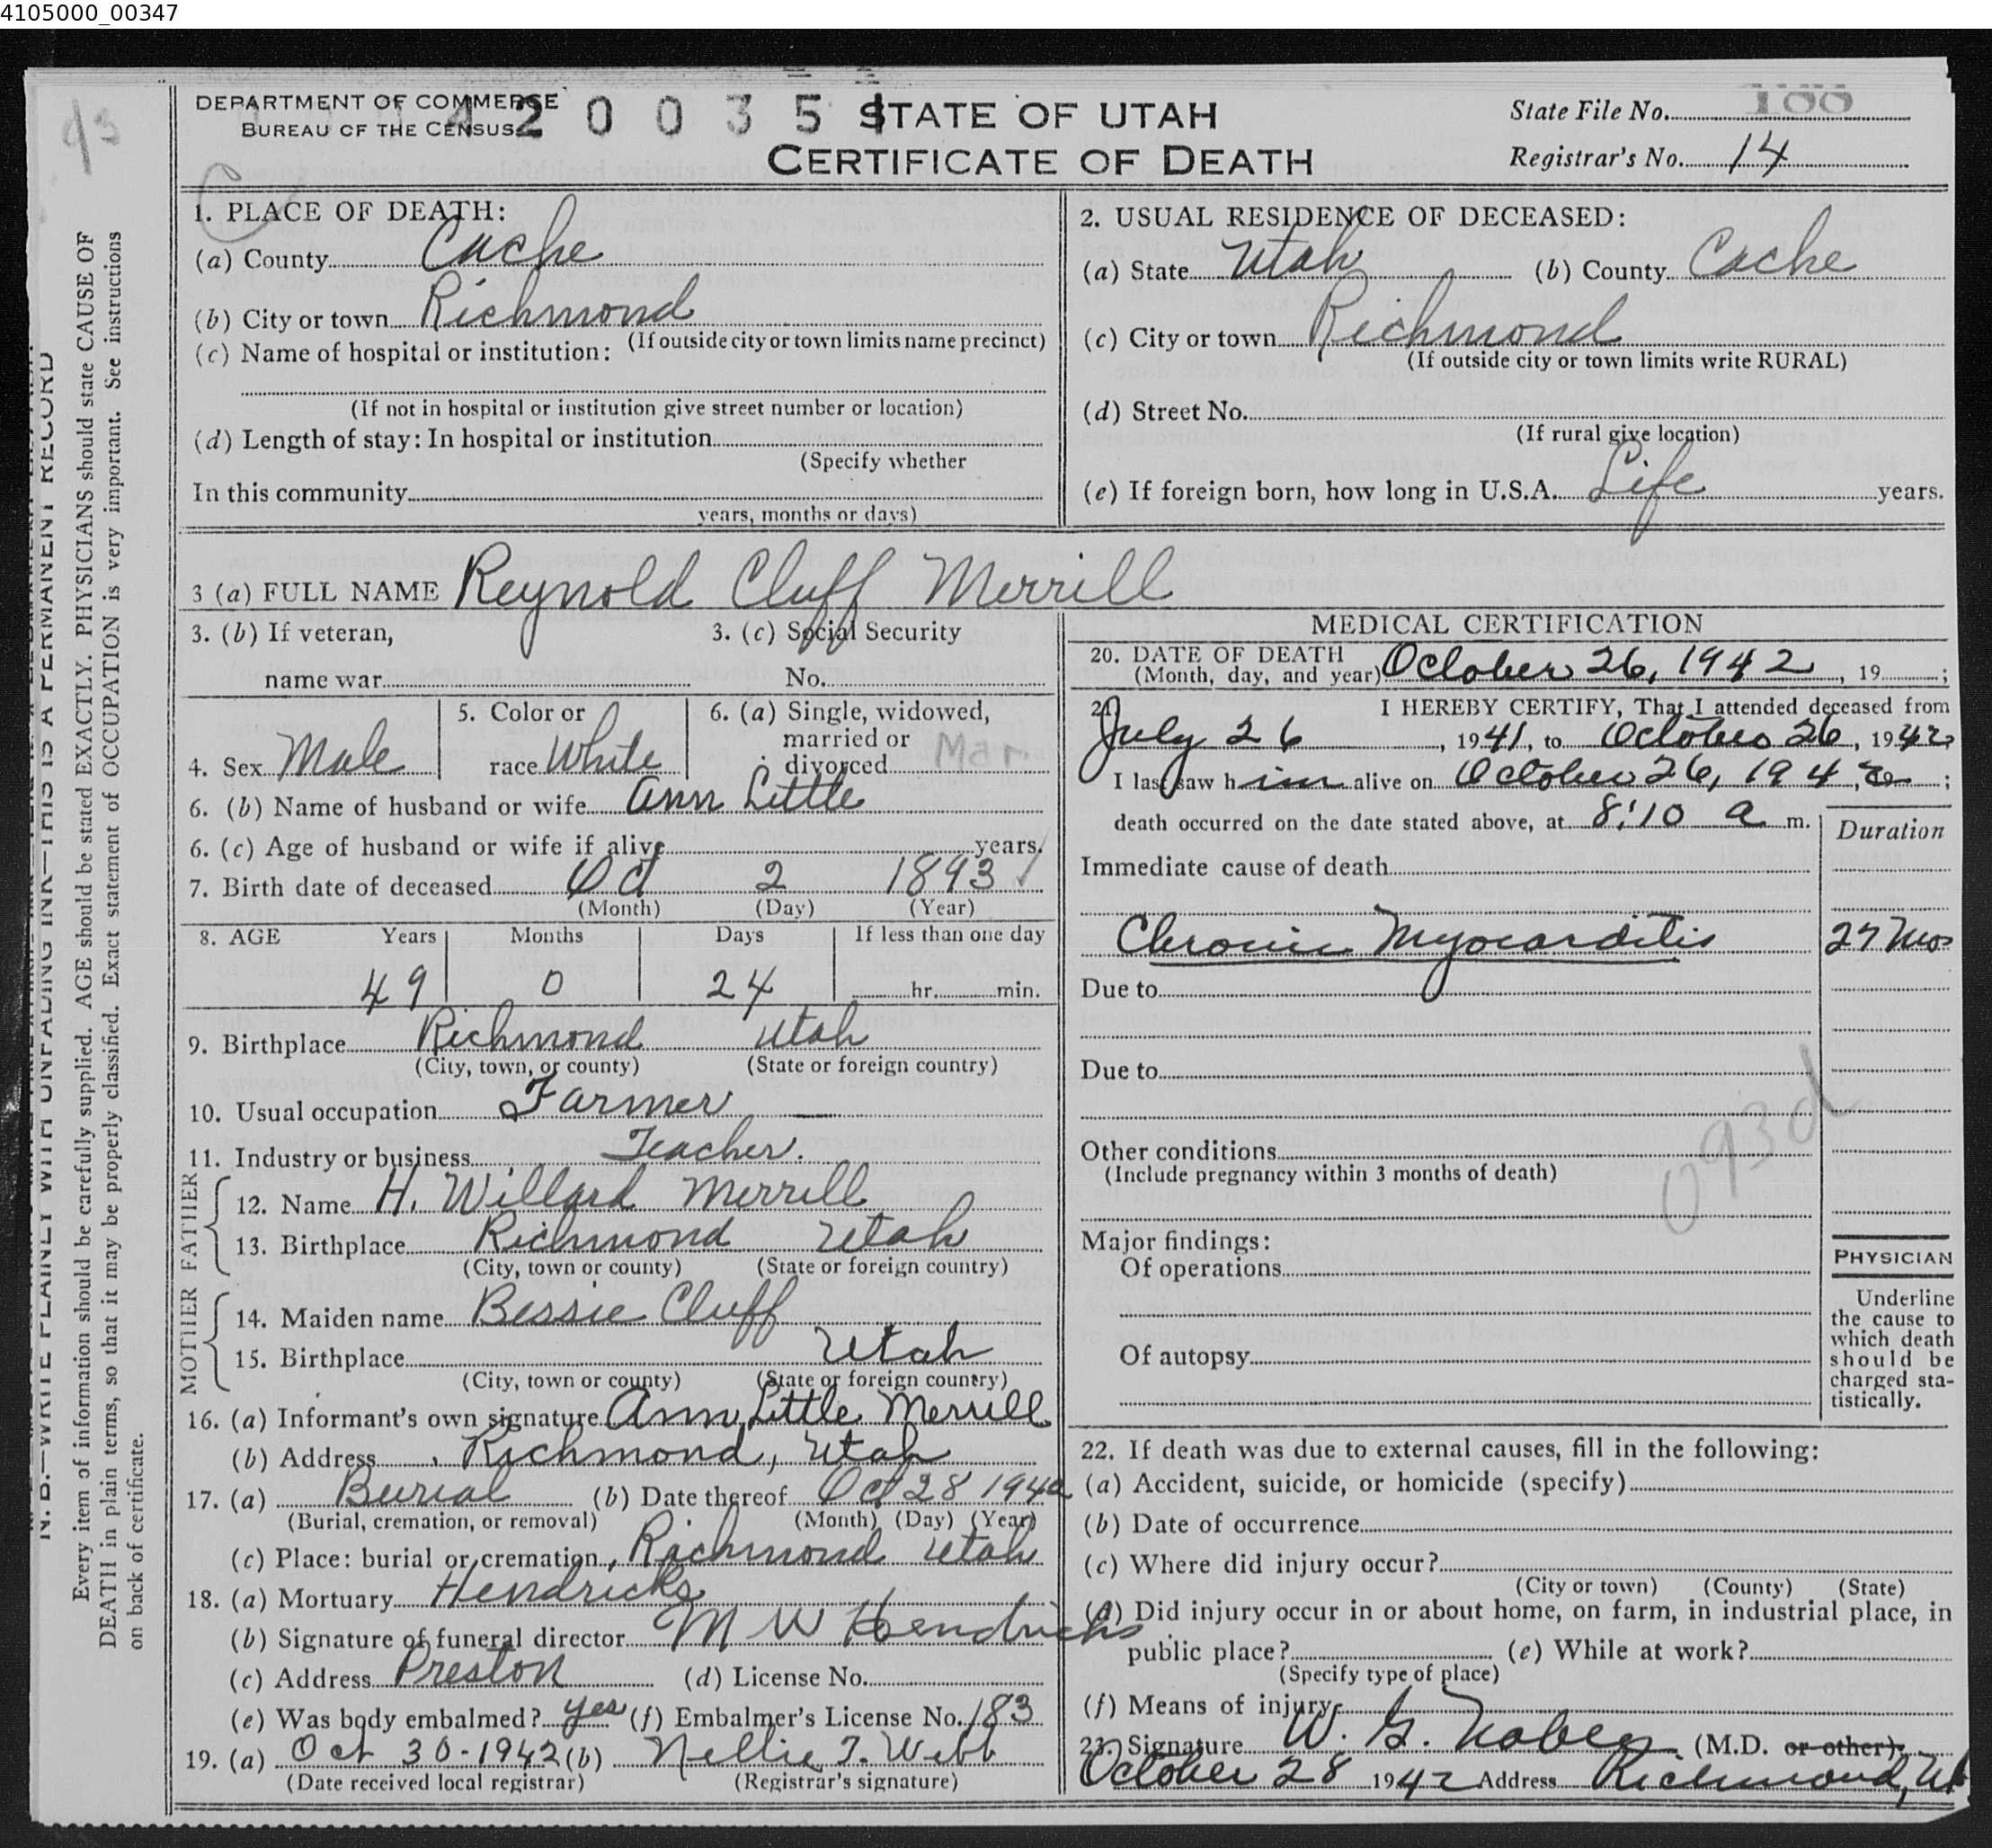 4105000_00347
93
DEPARTMENT OF COMMERCE
BUREAU OF THE CENSUS
4 2 0 0 3 5 1
STATE OF UTAH
CERTIFICATE OF DEATH
State File No. 188
Registrar's No. 14
N. B.—WRITE PLAINLY WITH UNFADING INK—THIS IS A PERMANENT RECORD
Every item of information should be carefully supplied. AGE should be stated EXACTLY. PHYSICIANS should state CAUSE OF
DEATH in plain terms, so that it may be properly classified. Exact statement of OCCUPATION is very important. See instructions
on back of certificate.
1. PLACE OF DEATH:
(a) County Cache
(b) City or town Richmond
(If outside city or town limits name precinct)
(c) Name of hospital or institution:
(If not in hospital or institution give street number or location)
(d) Length of stay: In hospital or institution
(Specify whether
In this community
years, months or days)
2. USUAL RESIDENCE OF DECEASED:
(a) State Utah (b) County Cache
(c) City or town Richmond
(If outside city or town limits write RURAL)
(d) Street No.
(If rural give location)
(e) If foreign born, how long in U.S.A. Life years.
3 (a) FULL NAME Reynold Cluff Merrill
3. (b) If veteran, 3. (c) Social Security
name war No.
4. Sex Male
5. Color or
race White
6. (a) Single, widowed,
married or
divorced Mar
6. (b) Name of husband or wife Ann Little
6. (c) Age of husband or wife if alive years.
7. Birth date of deceased Oct 2 1893
(Month) (Day) (Year)
8. AGE Years Months Days If less than one day
49 0 24 hr. min.
9. Birthplace Richmond Utah
(City, town, or county) (State or foreign country)
10. Usual occupation Farmer
11. Industry or business Teacher.
FATHER
12. Name H. Willard Merrill
13. Birthplace Richmond Utah
(City, town or county) (State or foreign country)
MOTHER
14. Maiden name Bessie Cluff
15. Birthplace Utah
(City, town or county) (State or foreign country)
16. (a) Informant's own signature Ann Little Merrill
(b) Address Richmond, Utah
17. (a) Burial (b) Date thereof Oct 28 1942
(Burial, cremation, or removal) (Month) (Day) (Year)
(c) Place: burial or cremation Richmond Utah
18. (a) Mortuary Hendricks
(b) Signature of funeral director M W Hendricks
(c) Address Preston (d) License No.
(e) Was body embalmed? yes (f) Embalmer's License No. 183
19. (a) Oct 30-1942 (b) Nellie T. Webb
(Date received local registrar) (Registrar's signature)
MEDICAL CERTIFICATION
20. DATE OF DEATH
(Month, day, and year) October 26, 1942, 19 ;
21. I HEREBY CERTIFY, That I attended deceased from
July 26, 1941, to October 26, 1942
I last saw him alive on October 26, 1942, 19 ;
death occurred on the date stated above, at 8:10 a m.
Duration
Immediate cause of death
Chronic Myocarditis 27 Mos
Due to
Due to
Other conditions
(Include pregnancy within 3 months of death)
093d
Major findings:
Of operations
Of autopsy
PHYSICIAN
Underline
the cause to
which death
should be
charged sta-
tistically.
22. If death was due to external causes, fill in the following:
(a) Accident, suicide, or homicide (specify)
(b) Date of occurrence
(c) Where did injury occur?
(City or town) (County) (State)
(d) Did injury occur in or about home, on farm, in industrial place, in
public place? (e) While at work?
(Specify type of place)
(f) Means of injury
23. Signature W. G. Noble (M.D. or other)
October 28 1942 Address Richmond, Ut